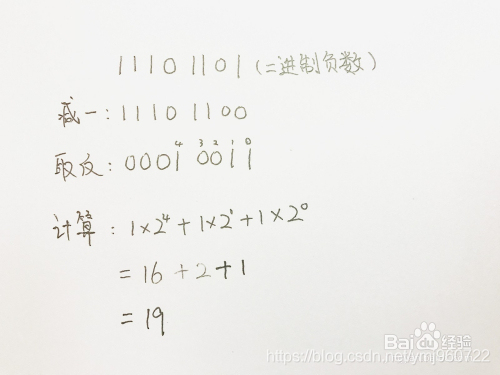 11101101(二进制负数)
减一:11101100
4 3 2 1 0
取反:00010011
计算:1×2⁴+1×2¹+1×2⁰
=16+2+1
=19
Baidu经验
https://blog.csdn.net/ymj960722